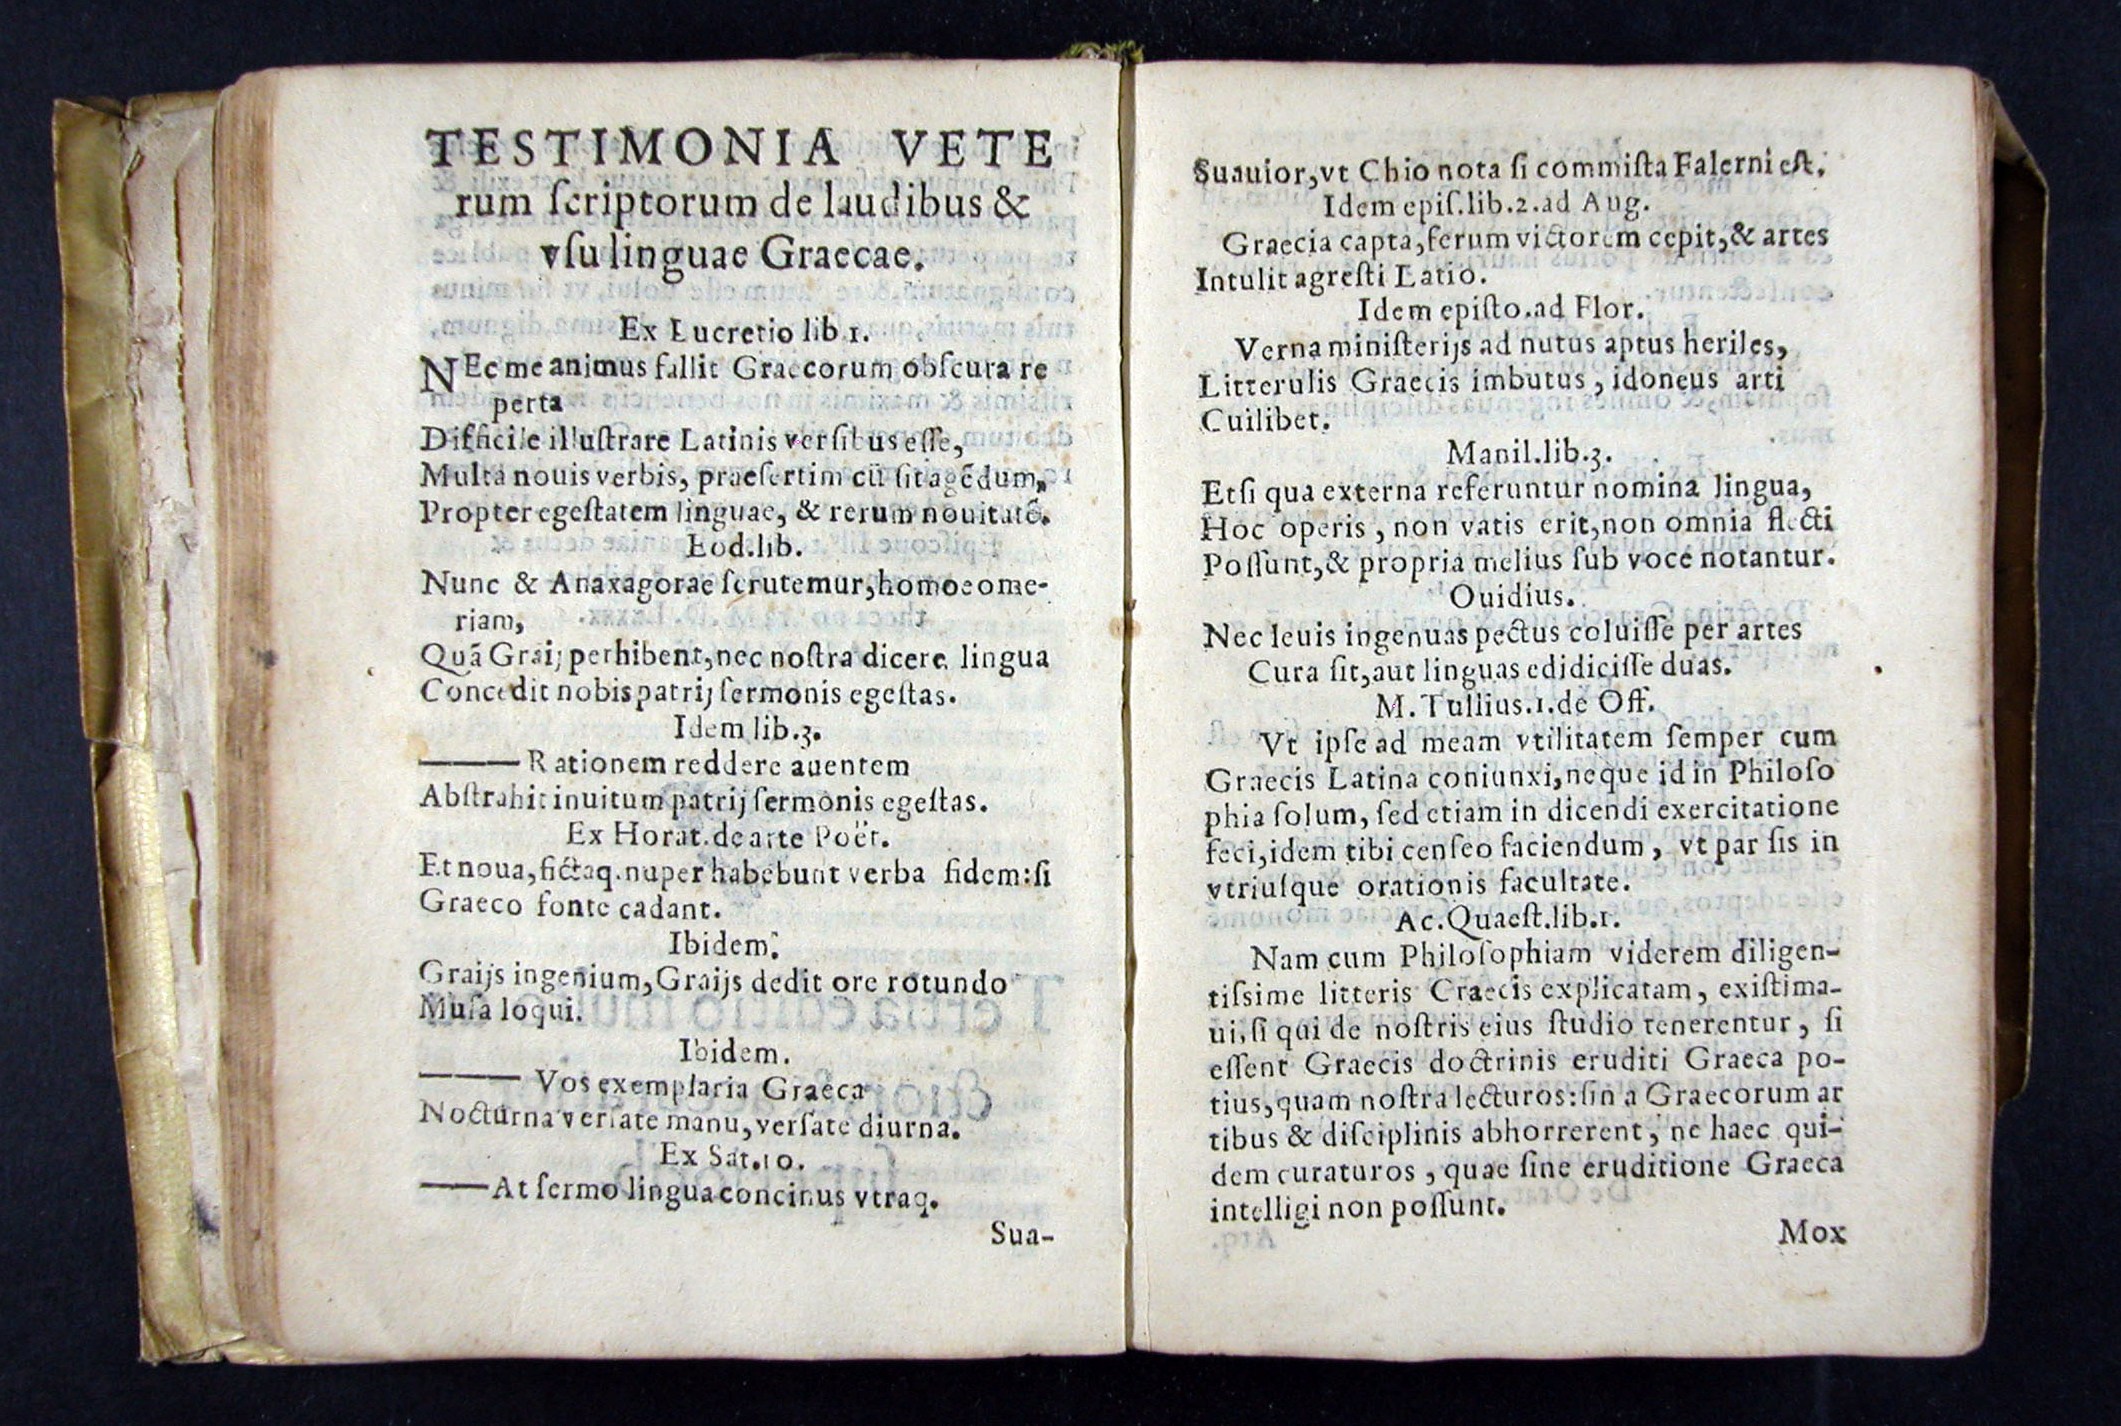 TESTIMONIA VETE
rum ſcriptorum de laudibus &
vſu linguae Graecae.
Ex Lucretio lib 1.
NEc me animus fallit Graecorum obſcura re
perta
Difficile illuſtrare Latinis verſibus eſſe,
Multa nouis verbis, praeſertim cū ſit agēdum,
Propter egeſtatem linguae, & rerum nouitatē.
Eod.lib.
Nunc & Anaxagorae ſcrutemur, homoeome-
riam,
Quā Graij perhibent, nec noſtra dicere lingua
Concedit nobis patrij ſermonis egeſtas.
Idem lib.3.
——— Rationem reddere auentem
Abſtrahit inuitum patrij ſermonis egeſtas.
Ex Horat. de arte Poët.
Et noua, fictaq. nuper habebunt verba fidem: ſi
Graeco fonte cadant.
Ibidem.
Graijs ingenium, Graijs dedit ore rotundo
Muſa loqui.
Ibidem.
——— Vos exemplaria Graeca
Nocturna verſate manu, verſate diurna.
Ex Sat.10.
——At ſermo lingua concinus vtraq.
Sua-
Suauior, vt Chio nota ſi commiſta Falerni eſt.
Idem epiſ.lib.2.ad Aug.
Graecia capta, ferum victorem cepit, & artes
Intulit agreſti Latio.
Idem epiſto.ad Flor.
Verna miniſterijs ad nutus aptus heriles,
Litterulis Graecis imbutus, idoneus arti
Cuilibet.
Manil.lib.3.
Etſi qua externa referuntur nomina lingua,
Hoc operis, non vatis erit, non omnia flecti
Poſſunt, & propria melius ſub voce notantur.
Ouidius.
Nec leuis ingenuas pectus coluiſſe per artes
Cura ſit, aut linguas edidiciſſe duas.
M. Tullius.1.de Off.
Vt ipſe ad meam vtilitatem ſemper cum
Graecis Latina coniunxi, neque id in Philoſo
phia ſolum, ſed etiam in dicendi exercitatione
feci, idem tibi cenſeo faciendum, vt par ſis in
vtriuſque orationis facultate.
Ac.Quaeſt.lib.1.
Nam cum Philoſophiam viderem diligen-
tiſsime litteris Craecis explicatam, exiſtima-
ui, ſi qui de noſtris eius ſtudio tenerentur, ſi
eſſent Graecis doctrinis eruditi Graeca po-
tius, quam noſtra lecturos: ſin a Graecorum ar
tibus & diſciplinis abhorrerent, ne haec qui-
dem curaturos, quae ſine eruditione Graeca
intelligi non poſſunt.
Mox